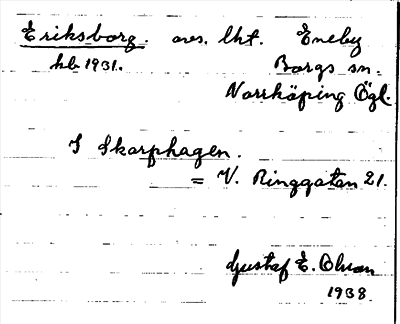 Eriksborg. avs. lht. Eneby
hb 1931. Borgs sn.
Norrköping Ögl.
I Skarphagen.
= V. Ringgatan 21.
Gustaf E. Olson
1938